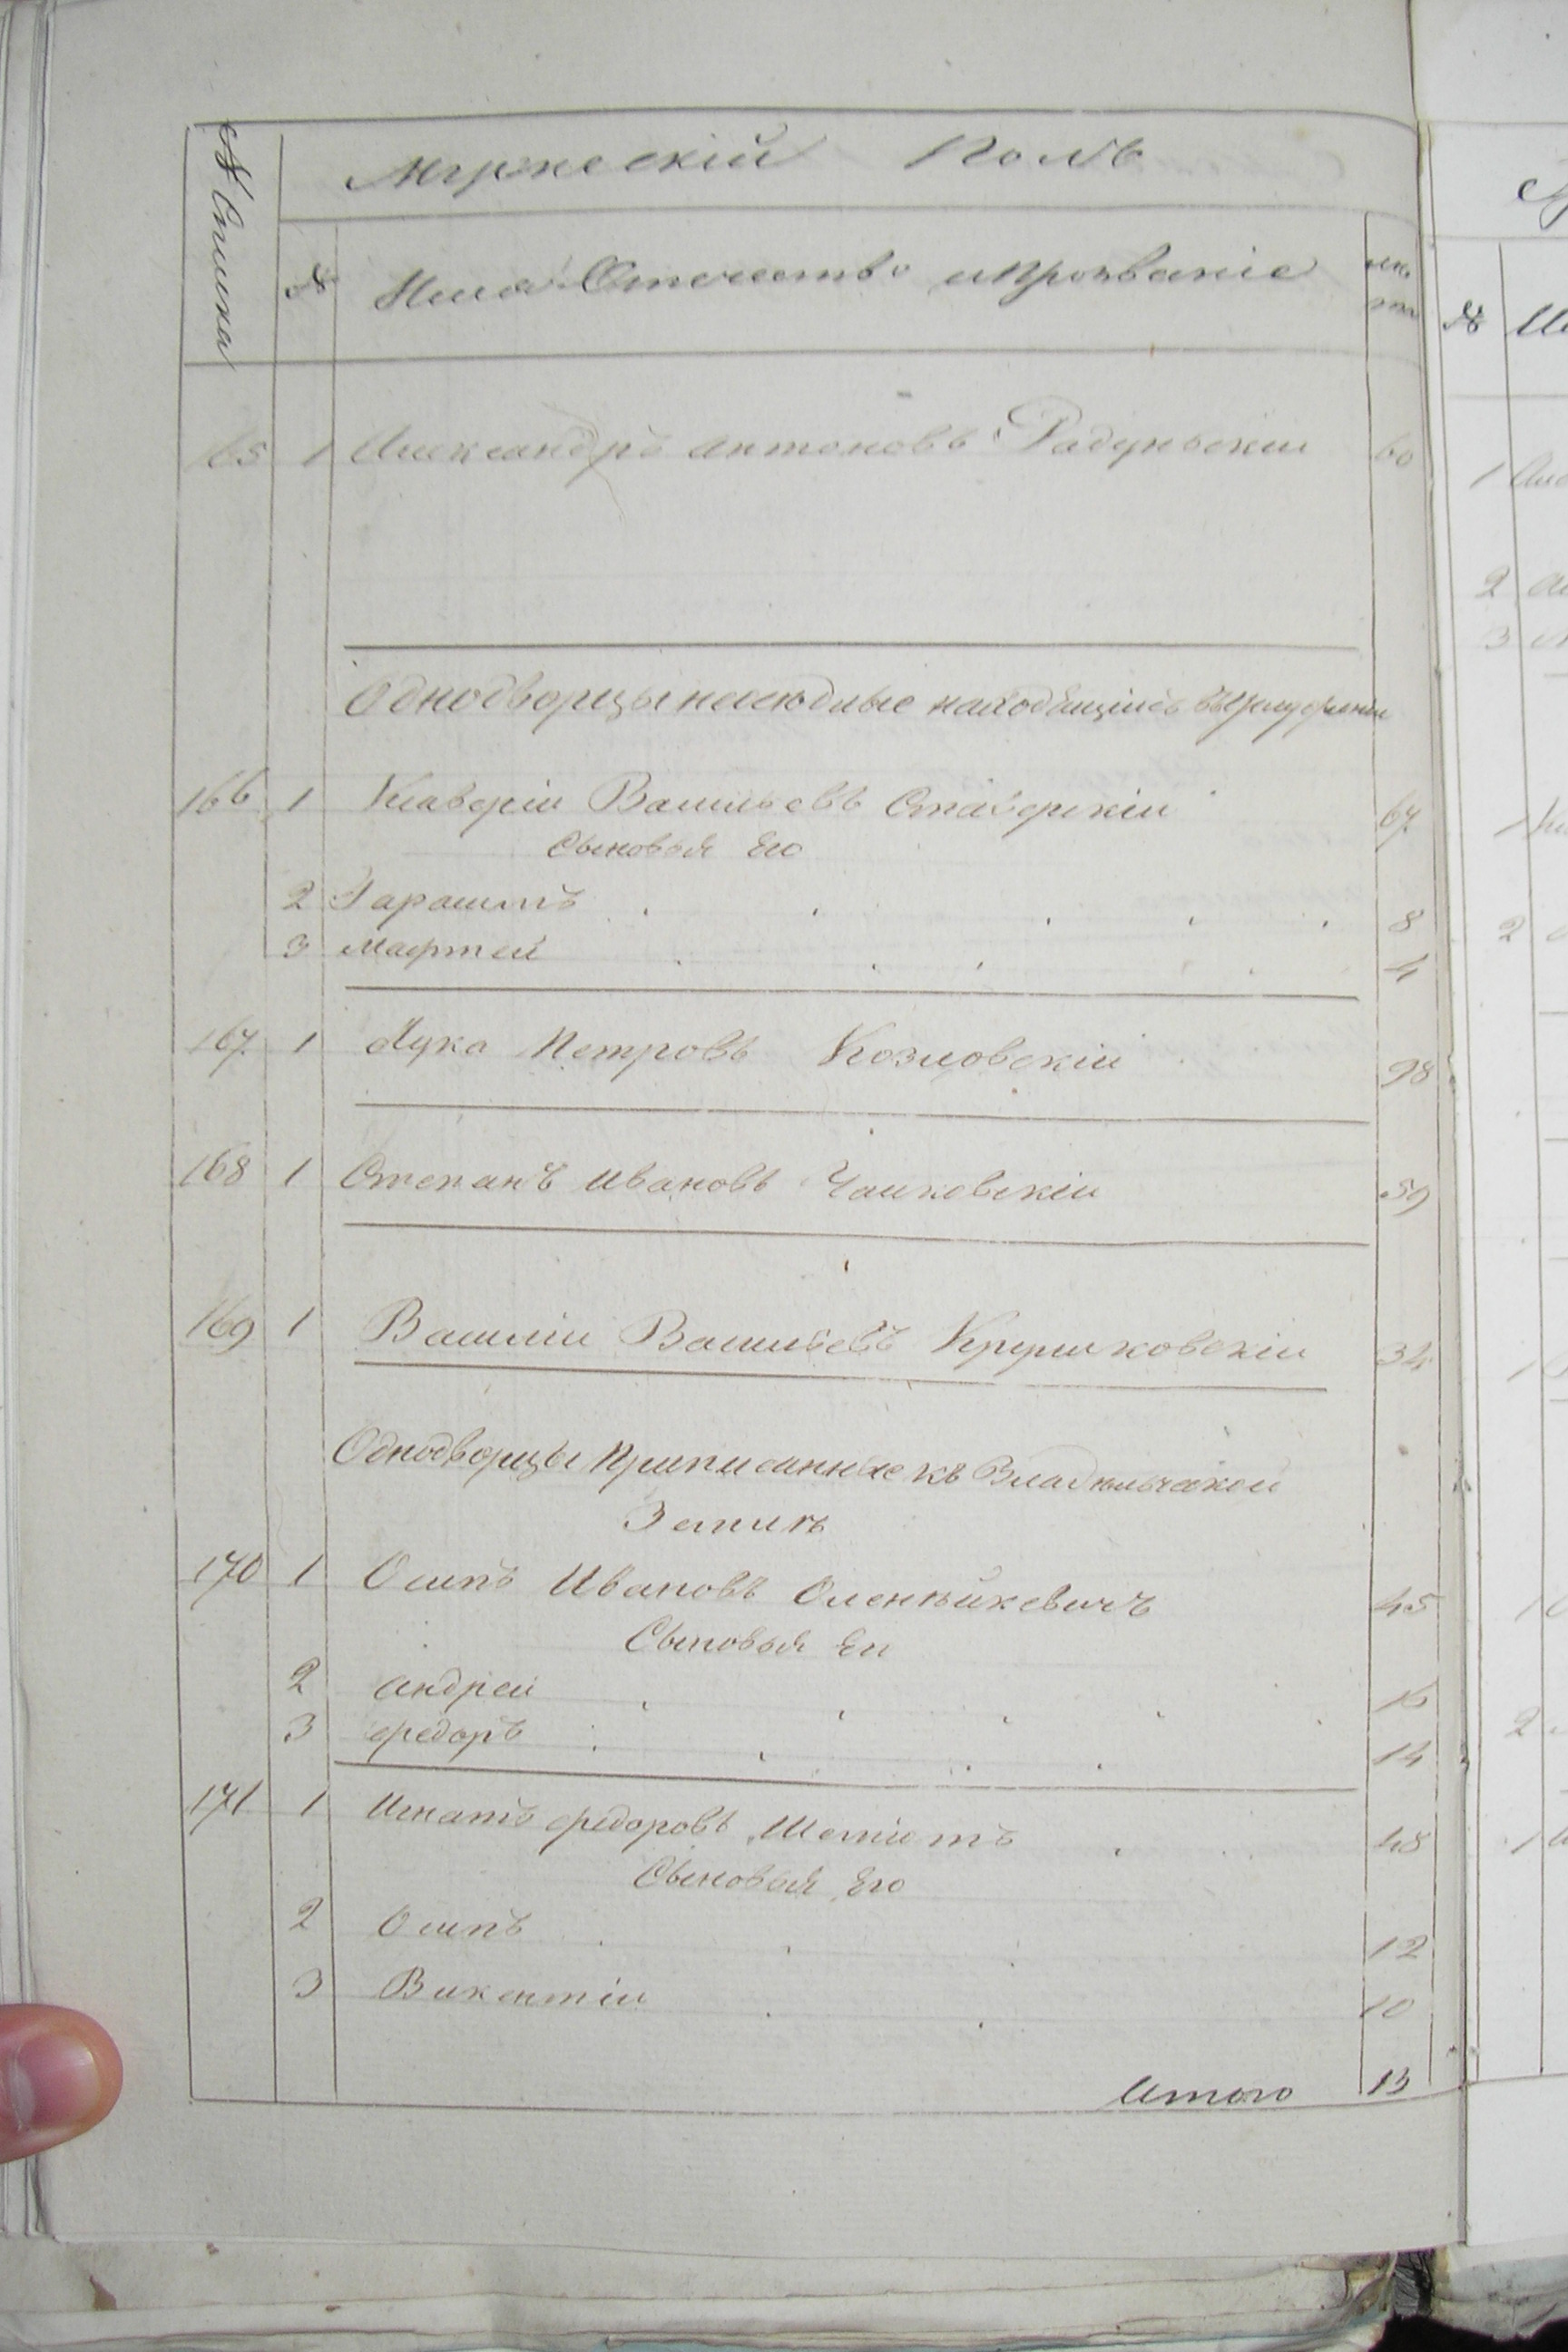 № Списка
Мужескій Полъ
№ Имя Отчество и Прозваніе лѣта
165 1 Александръ Антоновъ Радунскіи 60
Однодворцы неосѣдлые находящіеся въ
166 1 Ксаверіи Васильевъ Ставерскіи 67
Сыновья Его
2 Гарасимъ 8
3 Мафтей 4
167 1 Лука Петровъ Козловскіи 98
168 1 Степанъ Ивановъ Чаиковскіи 59
169 1 Василіи Васильевъ Крушковскіи 34
Однодворцы Приписанные къ Владѣльческой
Земли
170 1 Осипъ Ивановъ Оленьйкевичъ 45
Сыновья Его
2 Андреи 16
3 Федоръ 14
171 1 Игнатъ Федоровъ 48
Сыновья Его
2 Осипъ 12
3 Викентіи 10
Итого 13
№
1
2
3
1
2
1
1
2
1